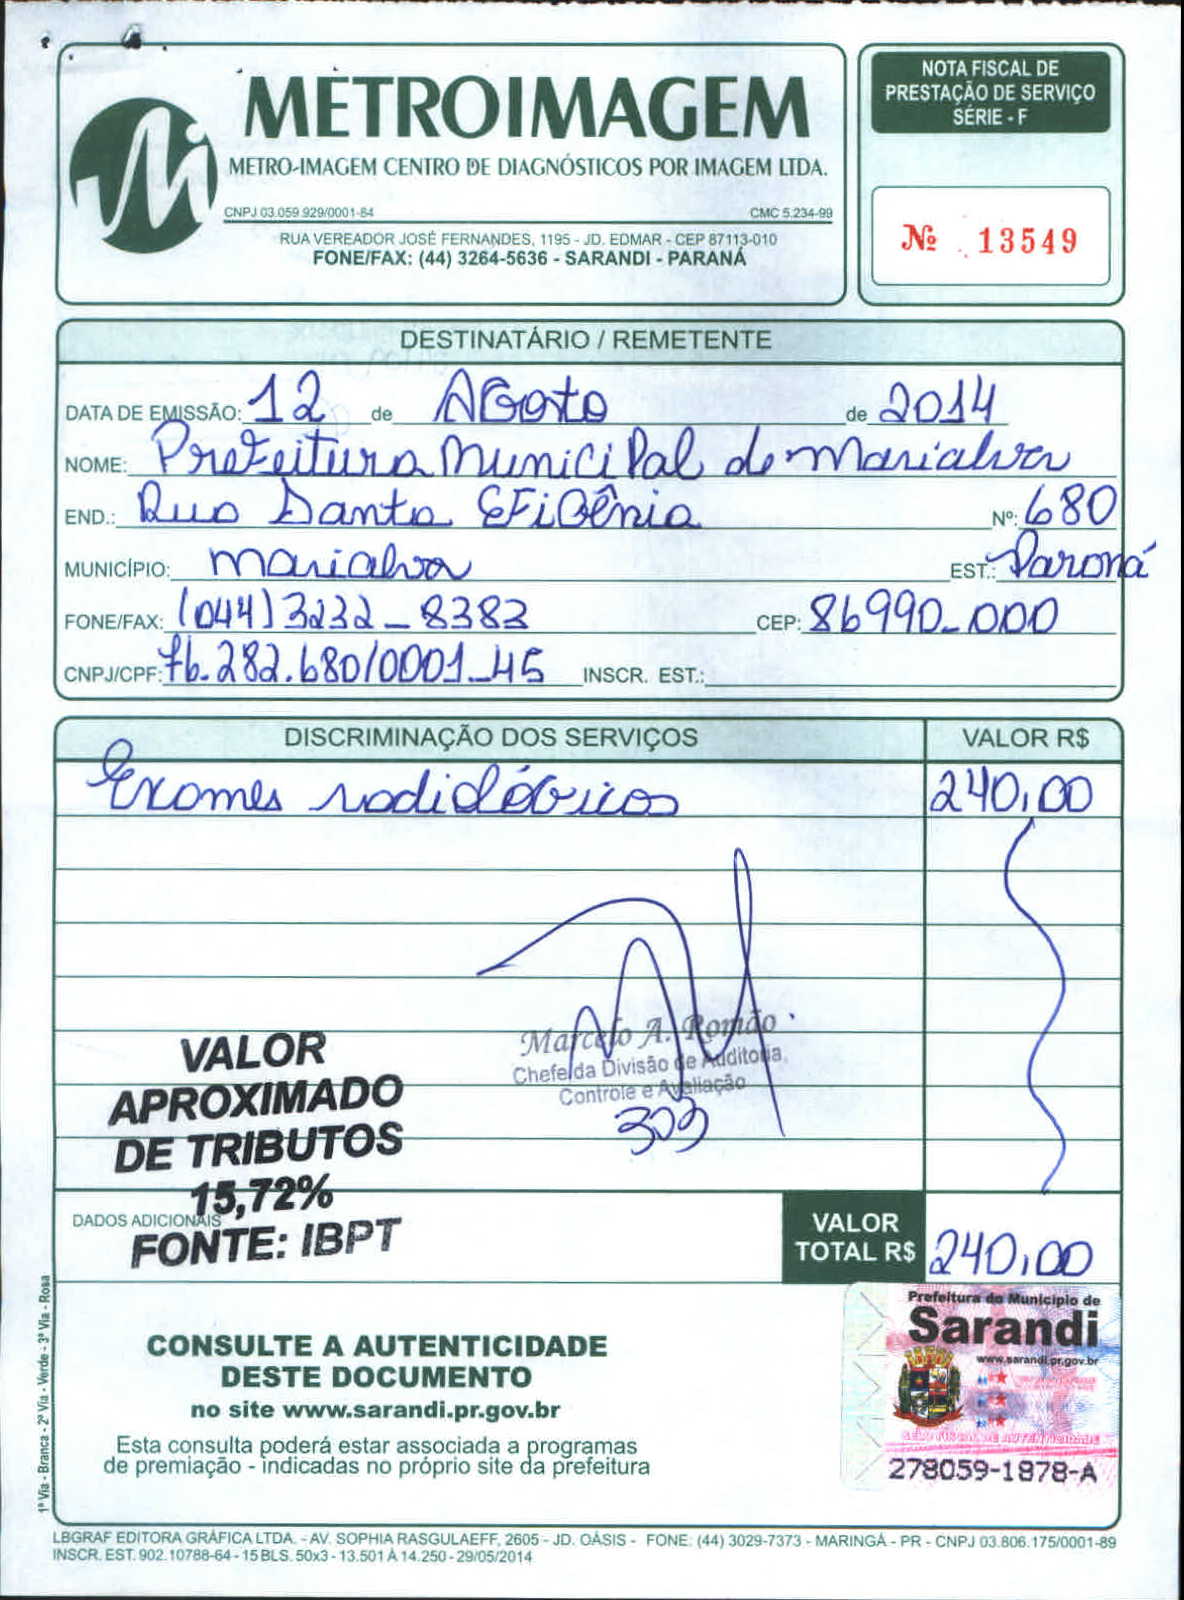 METROIMAGEM
METRO-IMAGEM CENTRO DE DIAGNÓSTICOS POR IMAGEM LTDA.
CNPJ 03.059.929/0001-84 CMC 5.234-99
RUA VEREADOR JOSÉ FERNANDES, 1195 - JD. EDMAR - CEP 87113-010
FONE/FAX: (44) 3264-5636 - SARANDI - PARANÁ
NOTA FISCAL DE
PRESTAÇÃO DE SERVIÇO
SÉRIE - F
Nº 13549
DESTINATÁRIO / REMETENTE
DATA DE EMISSÃO: 12 de Agosto de 2014
NOME: Prefeitura Municipal de Marialva
END.: Rua Santa Efigênia Nº: 680
MUNICÍPIO: Marialva EST.: Paraná
FONE/FAX: (044) 3232-8383 CEP: 86990-000
CNPJ/CPF: 76.282.680/0001-45 INSCR. EST.:
DISCRIMINAÇÃO DOS SERVIÇOS VALOR R$
Exames radiológicos 240,00
Marcelo A. Romão
Chefe da Divisão de Auditoria,
Controle e Avaliação
303
VALOR
APROXIMADO
DE TRIBUTOS
15,72%
FONTE: IBPT
DADOS ADICIONAIS
VALOR
TOTAL R$ 240,00
CONSULTE A AUTENTICIDADE
DESTE DOCUMENTO
no site www.sarandi.pr.gov.br
Esta consulta poderá estar associada a programas
de premiação - indicadas no próprio site da prefeitura
Prefeitura do Município de
Sarandi
www.sarandi.pr.gov.br
SELO FISCAL DE AUTENTICIDADE
278059-1878-A
1ª Via - Branca - 2ª Via - Verde - 3ª Via - Rosa
LBGRAF EDITORA GRÁFICA LTDA. - AV. SOPHIA RASGULAEFF, 2605 - JD. OÁSIS - FONE: (44) 3029-7373 - MARINGÁ - PR - CNPJ 03.806.175/0001-89
INSCR. EST. 902.10788-64 - 15 BLS. 50x3 - 13.501 À 14.250 - 29/05/2014